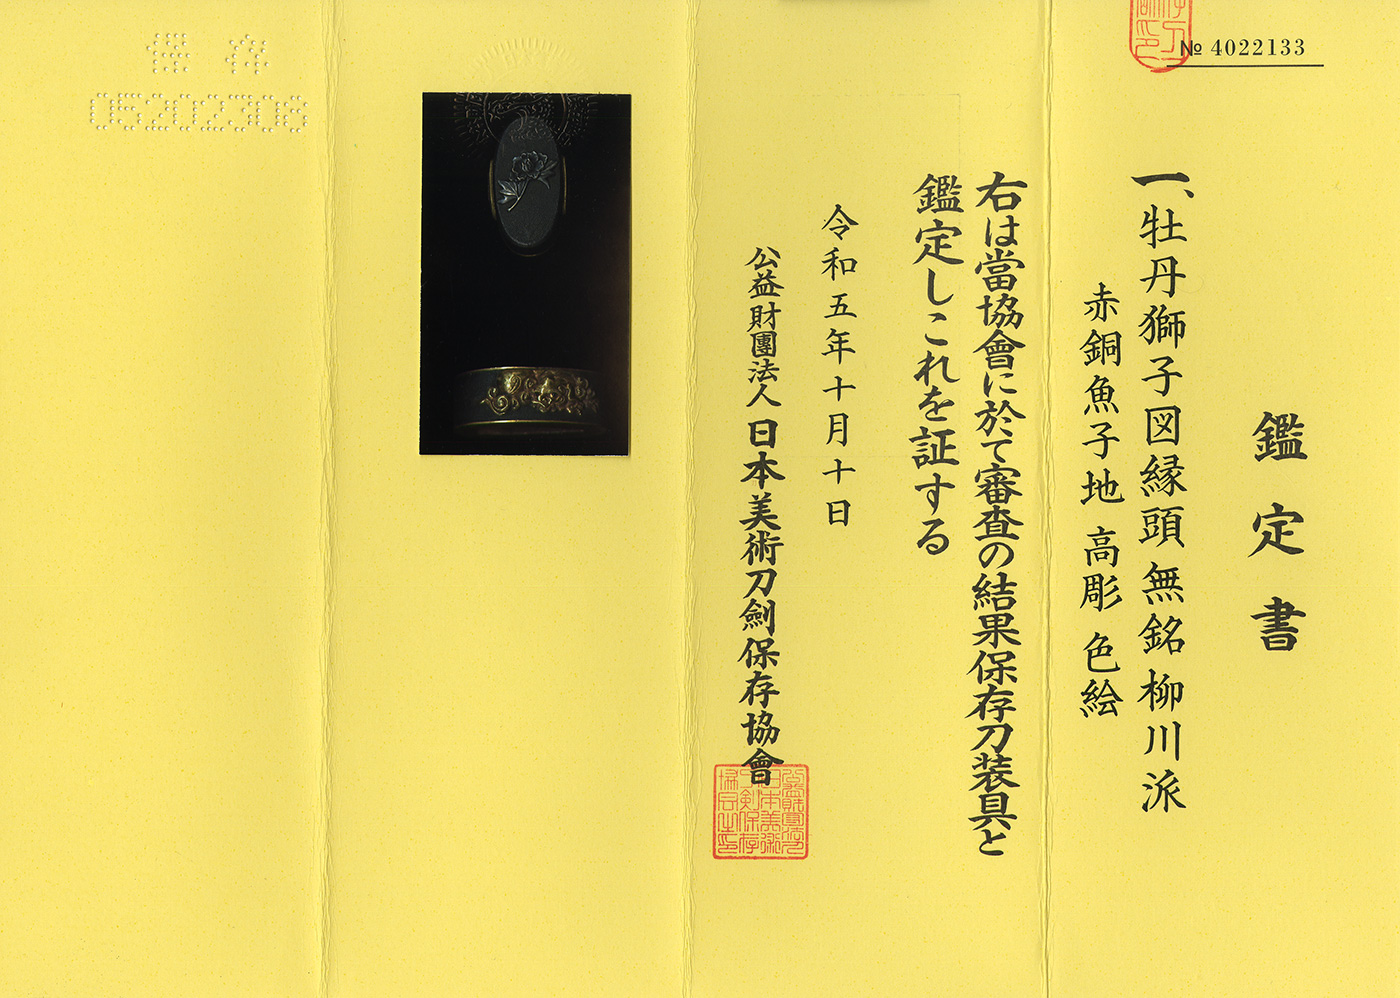 № 4022133
鑑定書
一、牡丹獅子図縁頭 無銘 柳川派
赤銅魚子地 高彫 色絵
右は當協會に於て審査の結果保存刀装具と
鑑定しこれを証する
令和五年十月十日
公益財團法人 日本美術刀劍保存協會
保存
05202308